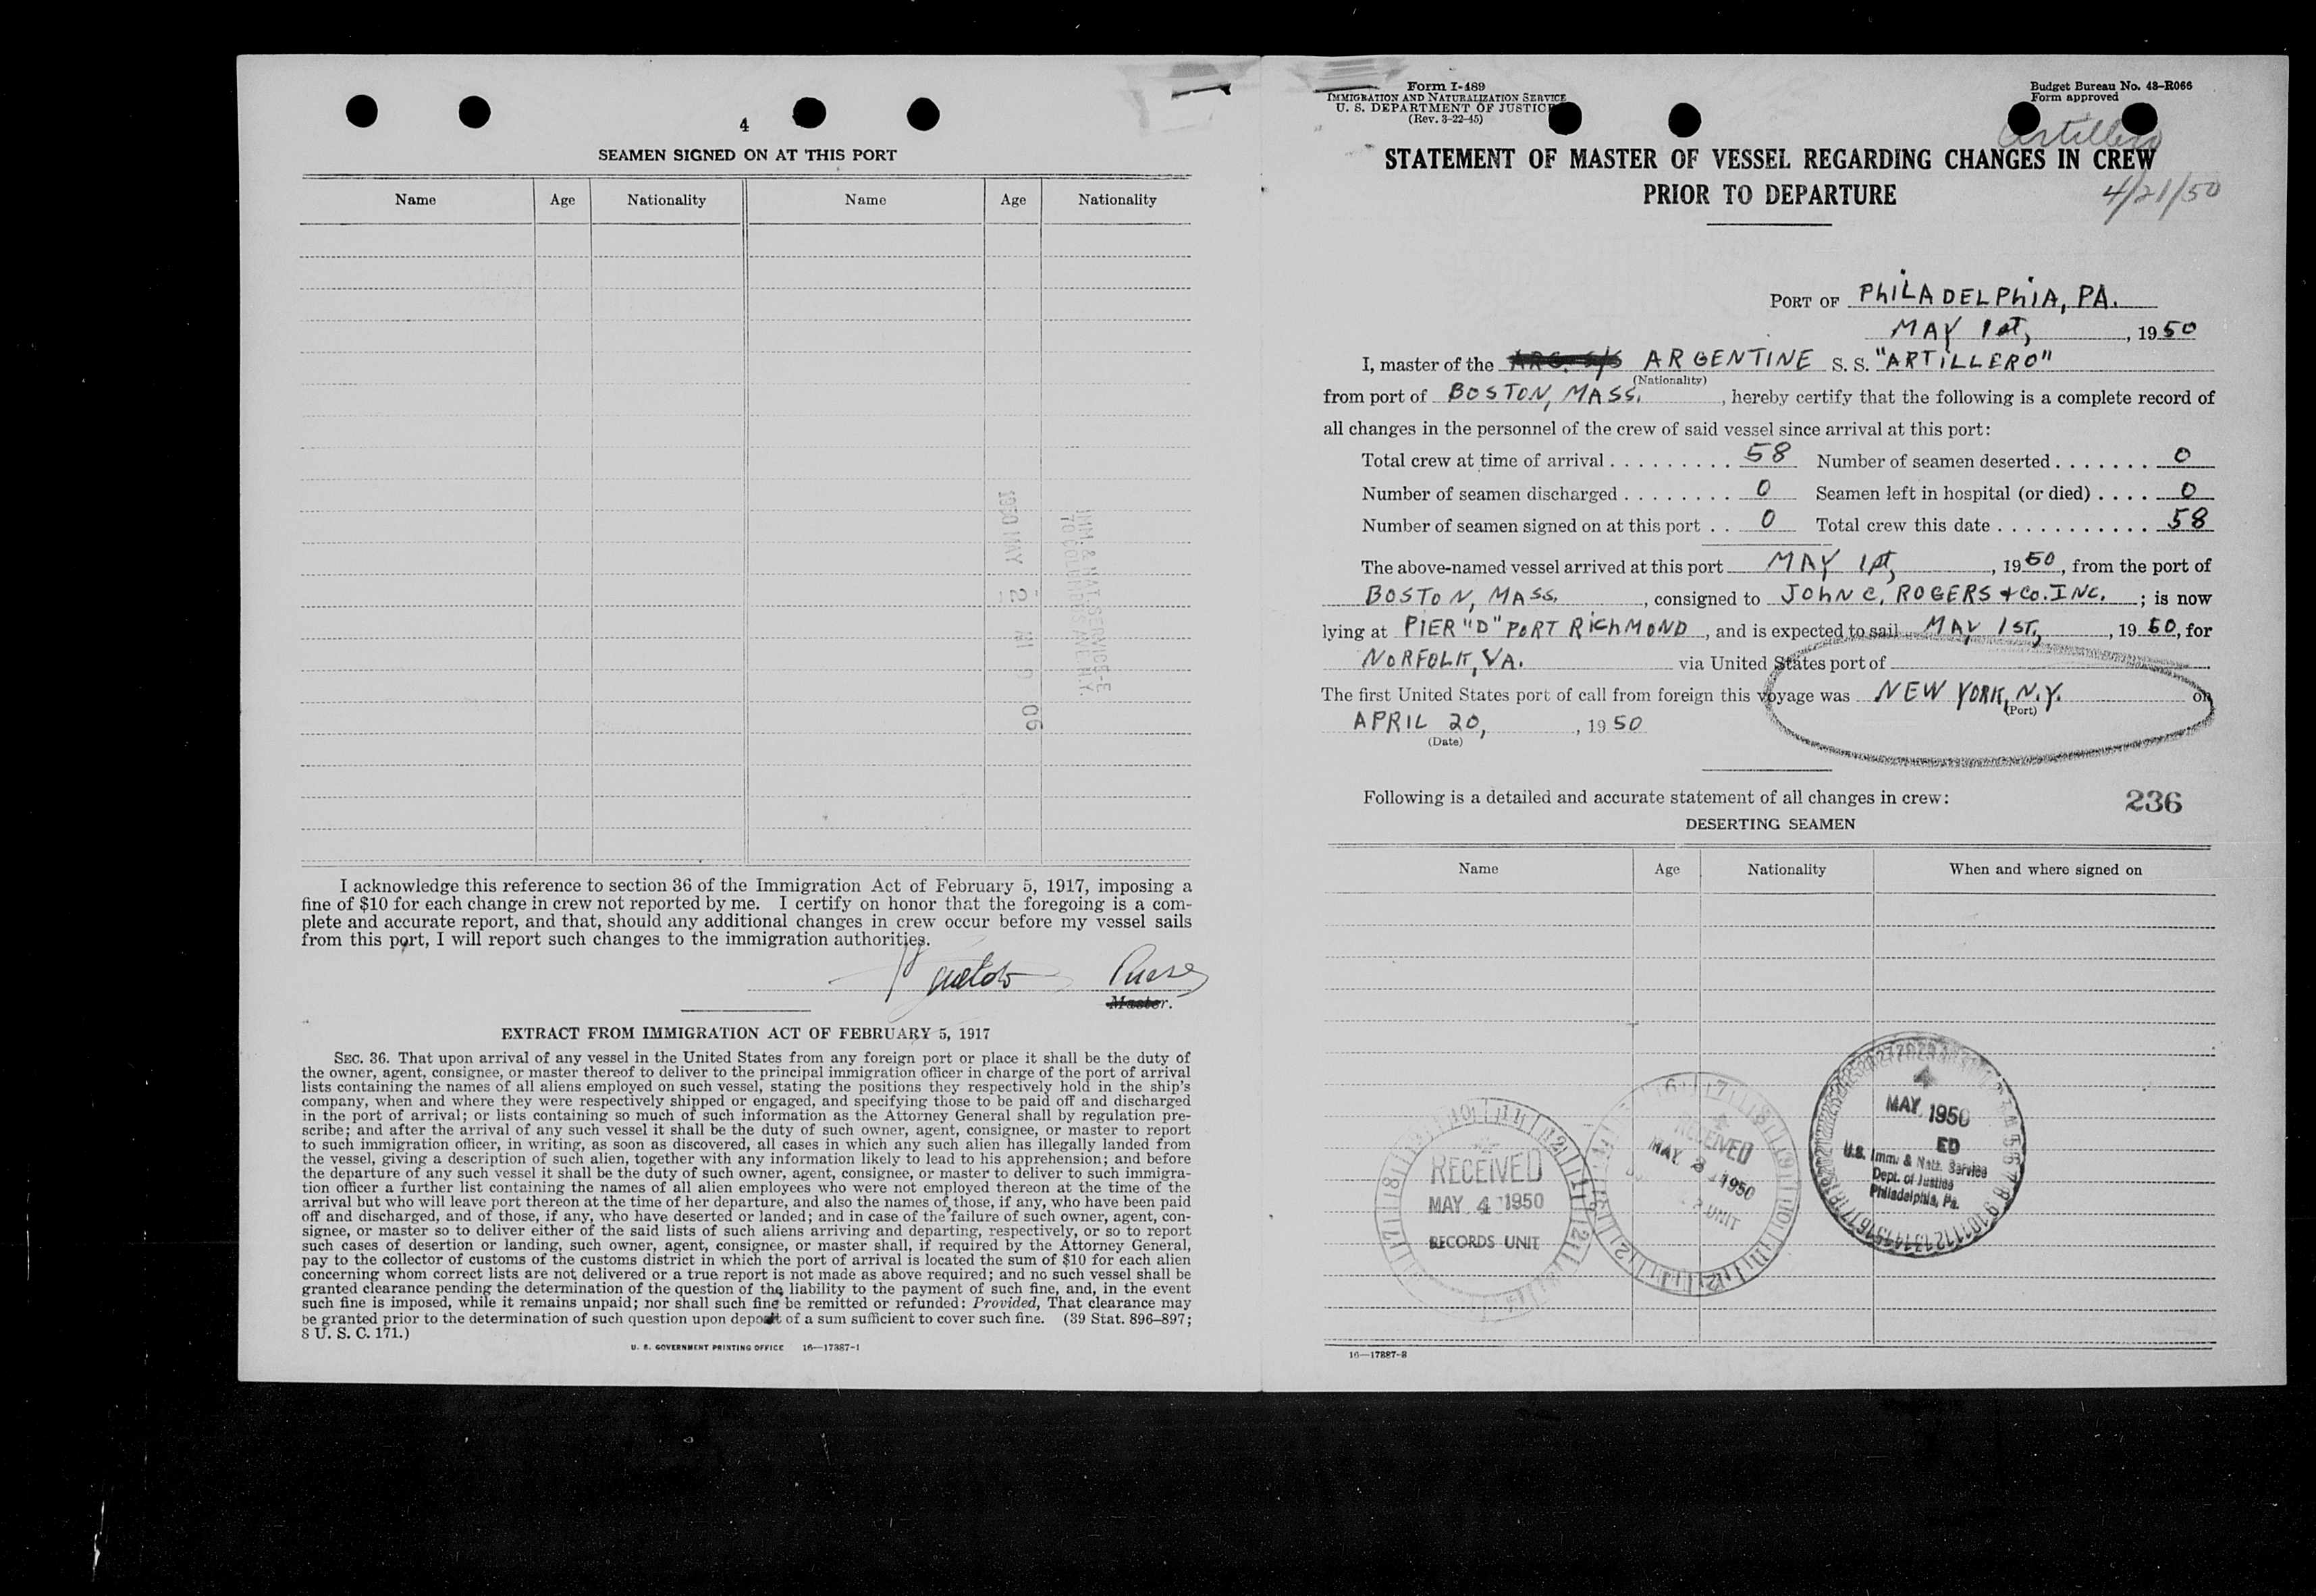 4
SEAMEN SIGNED ON AT THIS PORT
Name Age Nationality Name Age Nationality
1950 MAY 2
IMM. & NAT. SERVICE-E
06
I acknowledge this reference to section 36 of the Immigration Act of February 5, 1917, imposing a
fine of $10 for each change in crew not reported by me. I certify on honor that the foregoing is a com-
plete and accurate report, and that, should any additional changes in crew occur before my vessel sails
from this port, I will report such changes to the immigration authorities.
Master.
EXTRACT FROM IMMIGRATION ACT OF FEBRUARY 5, 1917
SEC. 36. That upon arrival of any vessel in the United States from any foreign port or place it shall be the duty of
the owner, agent, consignee, or master thereof to deliver to the principal immigration officer in charge of the port of arrival
lists containing the names of all aliens employed on such vessel, stating the positions they respectively hold in the ship's
company, when and where they were respectively shipped or engaged, and specifying those to be paid off and discharged
in the port of arrival; or lists containing so much of such information as the Attorney General shall by regulation pre-
scribe; and after the arrival of any such vessel it shall be the duty of such owner, agent, consignee, or master to report
to such immigration officer, in writing, as soon as discovered, all cases in which any such alien has illegally landed from
the vessel, giving a description of such alien, together with any information likely to lead to his apprehension; and before
the departure of any such vessel it shall be the duty of such owner, agent, consignee, or master to deliver to such immigra-
tion officer a further list containing the names of all alien employees who were not employed thereon at the time of the
arrival but who will leave port thereon at the time of her departure, and also the names of those, if any, who have been paid
off and discharged, and of those, if any, who have deserted or landed; and in case of the failure of such owner, agent, con-
signee, or master so to deliver either of the said lists of such aliens arriving and departing, respectively, or so to report
such cases of desertion or landing, such owner, agent, consignee, or master shall, if required by the Attorney General,
pay to the collector of customs of the customs district in which the port of arrival is located the sum of $10 for each alien
concerning whom correct lists are not delivered or a true report is not made as above required; and no such vessel shall be
granted clearance pending the determination of the question of the liability to the payment of such fine, and, in the event
such fine is imposed, while it remains unpaid; nor shall such fine be remitted or refunded: Provided, That clearance may
be granted prior to the determination of such question upon deposit of a sum sufficient to cover such fine. (39 Stat. 896–897;
8 U. S. C. 171.)
U. S. GOVERNMENT PRINTING OFFICE 16—17887-1
Form I-489
IMMIGRATION AND NATURALIZATION SERVICE
U. S. DEPARTMENT OF JUSTICE
(Rev. 3-22-45)
Budget Bureau No. 43-R066
Form approved
Artillero
STATEMENT OF MASTER OF VESSEL REGARDING CHANGES IN CREW
PRIOR TO DEPARTURE
4/21/50
PORT OF PHILADELPHIA, PA.
MAY 1st, , 1950
I, master of the ARG. S/S ARGENTINE S. S. "ARTILLERO"
(Nationality)
from port of BOSTON, MASS. , hereby certify that the following is a complete record of
all changes in the personnel of the crew of said vessel since arrival at this port:
Total crew at time of arrival 58 Number of seamen deserted 0
Number of seamen discharged 0 Seamen left in hospital (or died) 0
Number of seamen signed on at this port 0 Total crew this date 58
The above-named vessel arrived at this port MAY 1st, , 1950, from the port of
BOSTON, MASS. , consigned to JOHN C. ROGERS + CO. INC. ; is now
lying at PIER "D" PORT RICHMOND , and is expected to sail MAY 1ST, , 1950, for
NORFOLK, VA. via United States port of
The first United States port of call from foreign this voyage was NEW YORK, N.Y. on
(Port)
APRIL 20, , 1950
(Date)
Following is a detailed and accurate statement of all changes in crew:
236
DESERTING SEAMEN
Name Age Nationality When and where signed on
RECEIVED
MAY 4 1950
RECORDS UNIT
RECEIVED
MAY 3 1950
UNIT
4
MAY 1950
ED
U.S. Imm. & Natz. Service
Dept. of Justice
Philadelphia, Pa.
16—17887-2